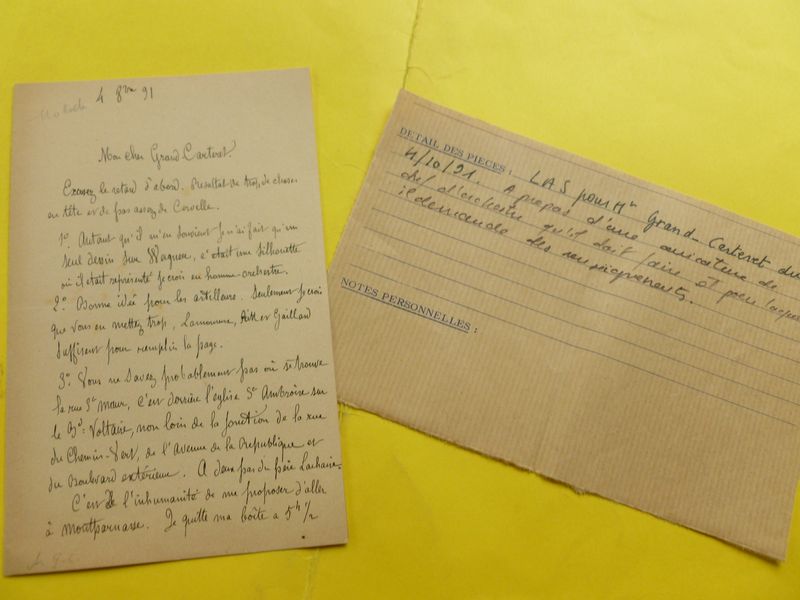 4 8bre 91
Mon cher Grand Carteret.
Excusez le retard d'abord. Résultat de trop de choses
en tête et de pas assez de Cervelle.
1º. Autant qu'il m'en souvient je n'ai fait qu'un
seul dessin sur Wagner, c'était une silhouette
où il était représenté je crois en homme orchestre.
2º. Bonne idée pour les artilleurs. Seulement je crois
que vous en mettez trop, Lamoureux, et Gailland
suffisent pour remplir la page.
3º. Vous ne savez probablement pas où se trouve
la rue St Maur, C'est derrière l'église St Ambroise sur
le Bd. Voltaire, non loin de la jonction de la rue
du Chemin-Vert, de l'Avenue de la République et
du Boulevard extérieur. A deux pas du père Lachaise.
C'est de l'inhumanité de me proposer d'aller
à Montparnasse. Je quitte ma boîte a 5h 1/2
DETAIL DES PIECES : LAS pour Mr Grand-Carteret du
4/10/91. A propos d'une caricature de
chef d'orchestre qu'il doit faire et pour laquelle
il demande des renseignements.
NOTES PERSONNELLES :